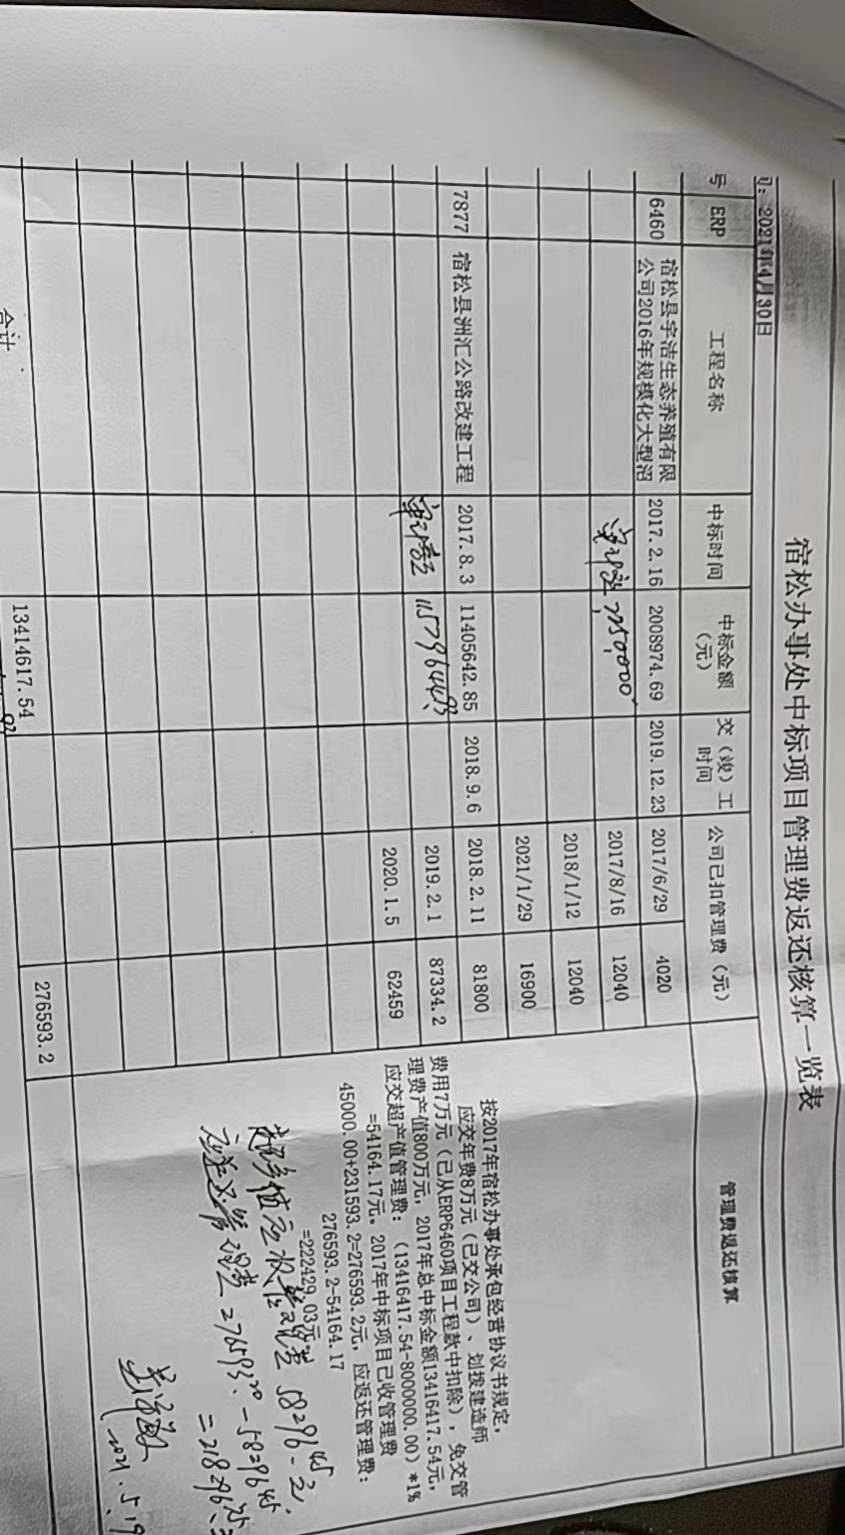 宿松办事处中标项目管理费返还核算一览表
2021年4月30日
号 ERP 工程名称 中标时间 中标金额（元） 交（竣）工时间 公司已扣管理费（元） 管理费返还核算
6460 宿松县宇洁生态养殖有限公司2016年规模化大型沼 2017.2.16 2008974.69 2019.12.23 2017/6/29 4020
2017/8/16 12040
2018/1/12 12040
2021/1/29 16900
7877 宿松县洲汇公路改建工程 2017.8.3 11405642.85 2018.9.6 2018.2.11 81800
11579644.93 2019.2.1 87334.2
2020.1.5 62459
按2017年宿松办事处承包经营协议书规定，
应交年费8万元（已交公司）、划拨建造师
费用7万元（已从ERP6460项目工程款中扣除），免交管
理费产值800万元，2017年总中标金额13416417.54元，
应交超产值管理费：（13416417.54-8000000.00）*1%
=54164.17元。2017年中标项目已收管理费
45000.00+231593.2=276593.2元，应返还管理费：
276593.2-54164.17
=222429.03元
超产值应收管理费 58296.45元
应返还管理费 276593.20-58296.45
=218296.75
2021.5.19
276593.2
合计 13414617.54